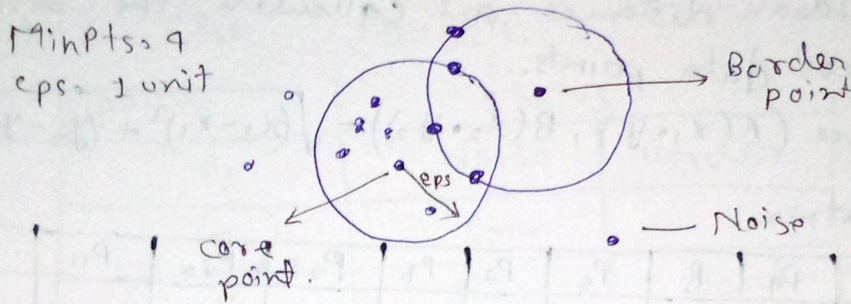 MinPts = 4
eps = 1 unit
Border
point
eps
core
point.
Noise